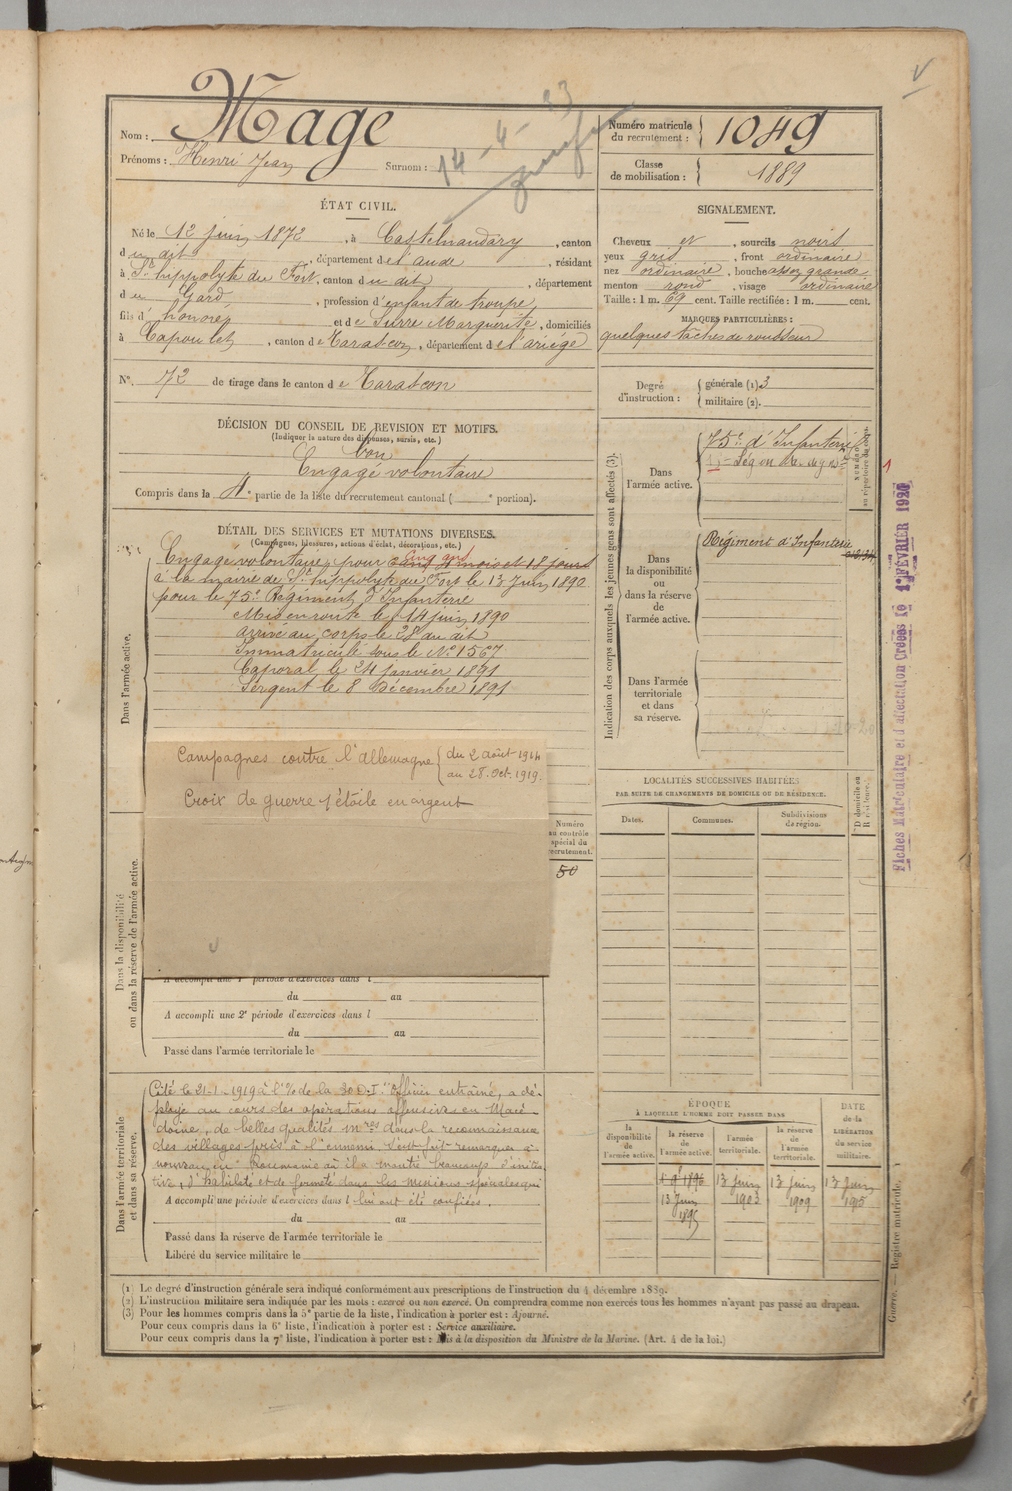 Nom : Mage
Prénoms : Henri Jean
Surnom :
14-4-33
Numéro matricule du recrutement : 1049
Classe de mobilisation : 1889
ÉTAT CIVIL.
Né le 12 juin 1872, à Castelnaudary, canton
du dit, département de l'aude, résidant
à St hippolyte du Fort, canton du dit, département
du Gard, profession d'enfant de troupe,
fils d' honoré et de Surre Marguerite, domiciliés
à Capoulet, canton de Tarascon, département de l'ariège
No. 72 de tirage dans le canton de Tarascon
SIGNALEMENT.
Cheveux et, sourcils noirs
yeux gris, front ordinaire
nez ordinaire, bouche assez grande
menton rond, visage ordinaire
Taille : 1 m. 69 cent. Taille rectifiée : 1 m. cent.
MARQUES PARTICULIÈRES :
quelques tâches de rousseur
Degré d'instruction : générale (1) 3
militaire (2).
DÉCISION DU CONSEIL DE REVISION ET MOTIFS.
(Indiquer la nature des dispenses, sursis, etc.)
bon
Engagé volontaire
Compris dans la 4e partie de la liste du recrutement cantonal ( e portion).
DÉTAIL DES SERVICES ET MUTATIONS DIVERSES.
(Campagnes, blessures, actions d'éclat, décorations, etc.)
Dans l'armée active.
cinq ans
Engagé volontaire pour cinq ans mois et 18 jours
à la mairie de St hippolyte du Fort le 13 Juin 1890
pour le 75e Régiment d'Infanterie
Mis en route le 14 juin 1890
arrivé au corps le 28 au dit
Immatriculé sous le No 1567
Caporal le 24 janvier 1891
Sergent le 8 Décembre 1891
Campagnes contre l'allemagne { du 2 août 1914
au 28. Oct. 1919.
Croix de guerre 1 étoile en argent
Indication des corps auxquels les jeunes gens sont affectés (3).
Dans l'armée active.
75e d'Infanterie
Dans la disponibilité ou dans la réserve de l'armée active.
Régiment d'Infanterie
Dans l'armée territoriale et dans sa réserve.
NUMÉROS au répertoire du corps.
Fiches Matriculaire et d'affectation Créées le 1er FÉVRIER 1920
LOCALITÉS SUCCESSIVES HABITÉES
PAR SUITE DE CHANGEMENTS DE DOMICILE OU DE RÉSIDENCE.
Dates.
Communes.
Subdivisions de région.
D domicile ou R résidence.
Numéro au contrôle spécial du recrutement.
50
Dans la disponibilité ou dans la réserve de l'armée active.
A accompli une 1re période d'exercices dans l
du au
A accompli une 2e période d'exercices dans l
du au
Passé dans l'armée territoriale le
Dans l'armée territoriale et dans sa réserve.
Cité le 21-1-1919 à l'% de la 30 D.I. "Officier entraîné, a dé-
ployé au cours des opérations offensives en Macé-
doine, de belles qualités mres dans la reconnaissance
des villages pris à l'ennemi. S'est fait remarquer à
nouveau en Roumanie où il a montré beaucoup d'initia-
tive, d'habileté et de fermeté dans les missions spéciales qui
A accompli une période d'exercices dans l lui ont été confiées.
du au
Passé dans la réserve de l'armée territoriale le
Libéré du service militaire le
ÉPOQUE
À LAQUELLE L'HOMME DOIT PASSER DANS
la disponibilité de l'armée active.
la réserve de l'armée active.
l'armée territoriale.
la réserve de l'armée territoriale.
DATE de la LIBÉRATION du service militaire.
13 Juin 1895
13 Juin 1903
13 Juin 1909
13 Juin 1915
(1) Le degré d'instruction générale sera indiqué conformément aux prescriptions de l'instruction du 4 décembre 1889.
(2) L'instruction militaire sera indiquée par les mots : exercé ou non exercé. On comprendra comme non exercés tous les hommes n'ayant pas passé au drapeau.
(3) Pour les hommes compris dans la 5e partie de la liste, l'indication à porter est : Ajourné.
Pour ceux compris dans la 6e liste, l'indication à porter est : Service auxiliaire.
Pour ceux compris dans la 7e liste, l'indication à porter est : Mis à la disposition du Ministre de la Marine. (Art. 4 de la loi.)
Guerre. — Registre matricule.